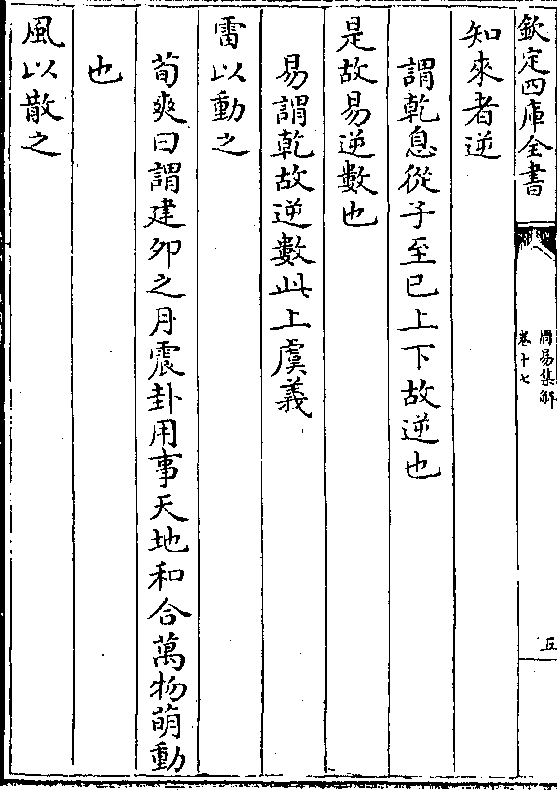 欽定四庫全書
周易集解
卷十七
五
知來者逆
謂乾息從子至巳上下故逆也
是故易逆數也
易謂乾故逆數此上虞義
雷以動之
荀爽曰謂建卯之月震卦用事天地和合萬物萌動
也
風以散之